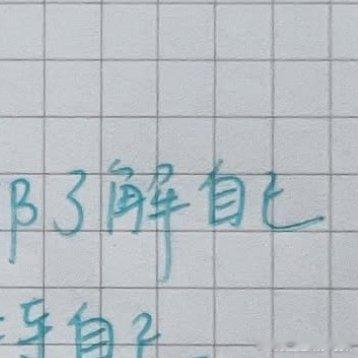 了解自己
自己